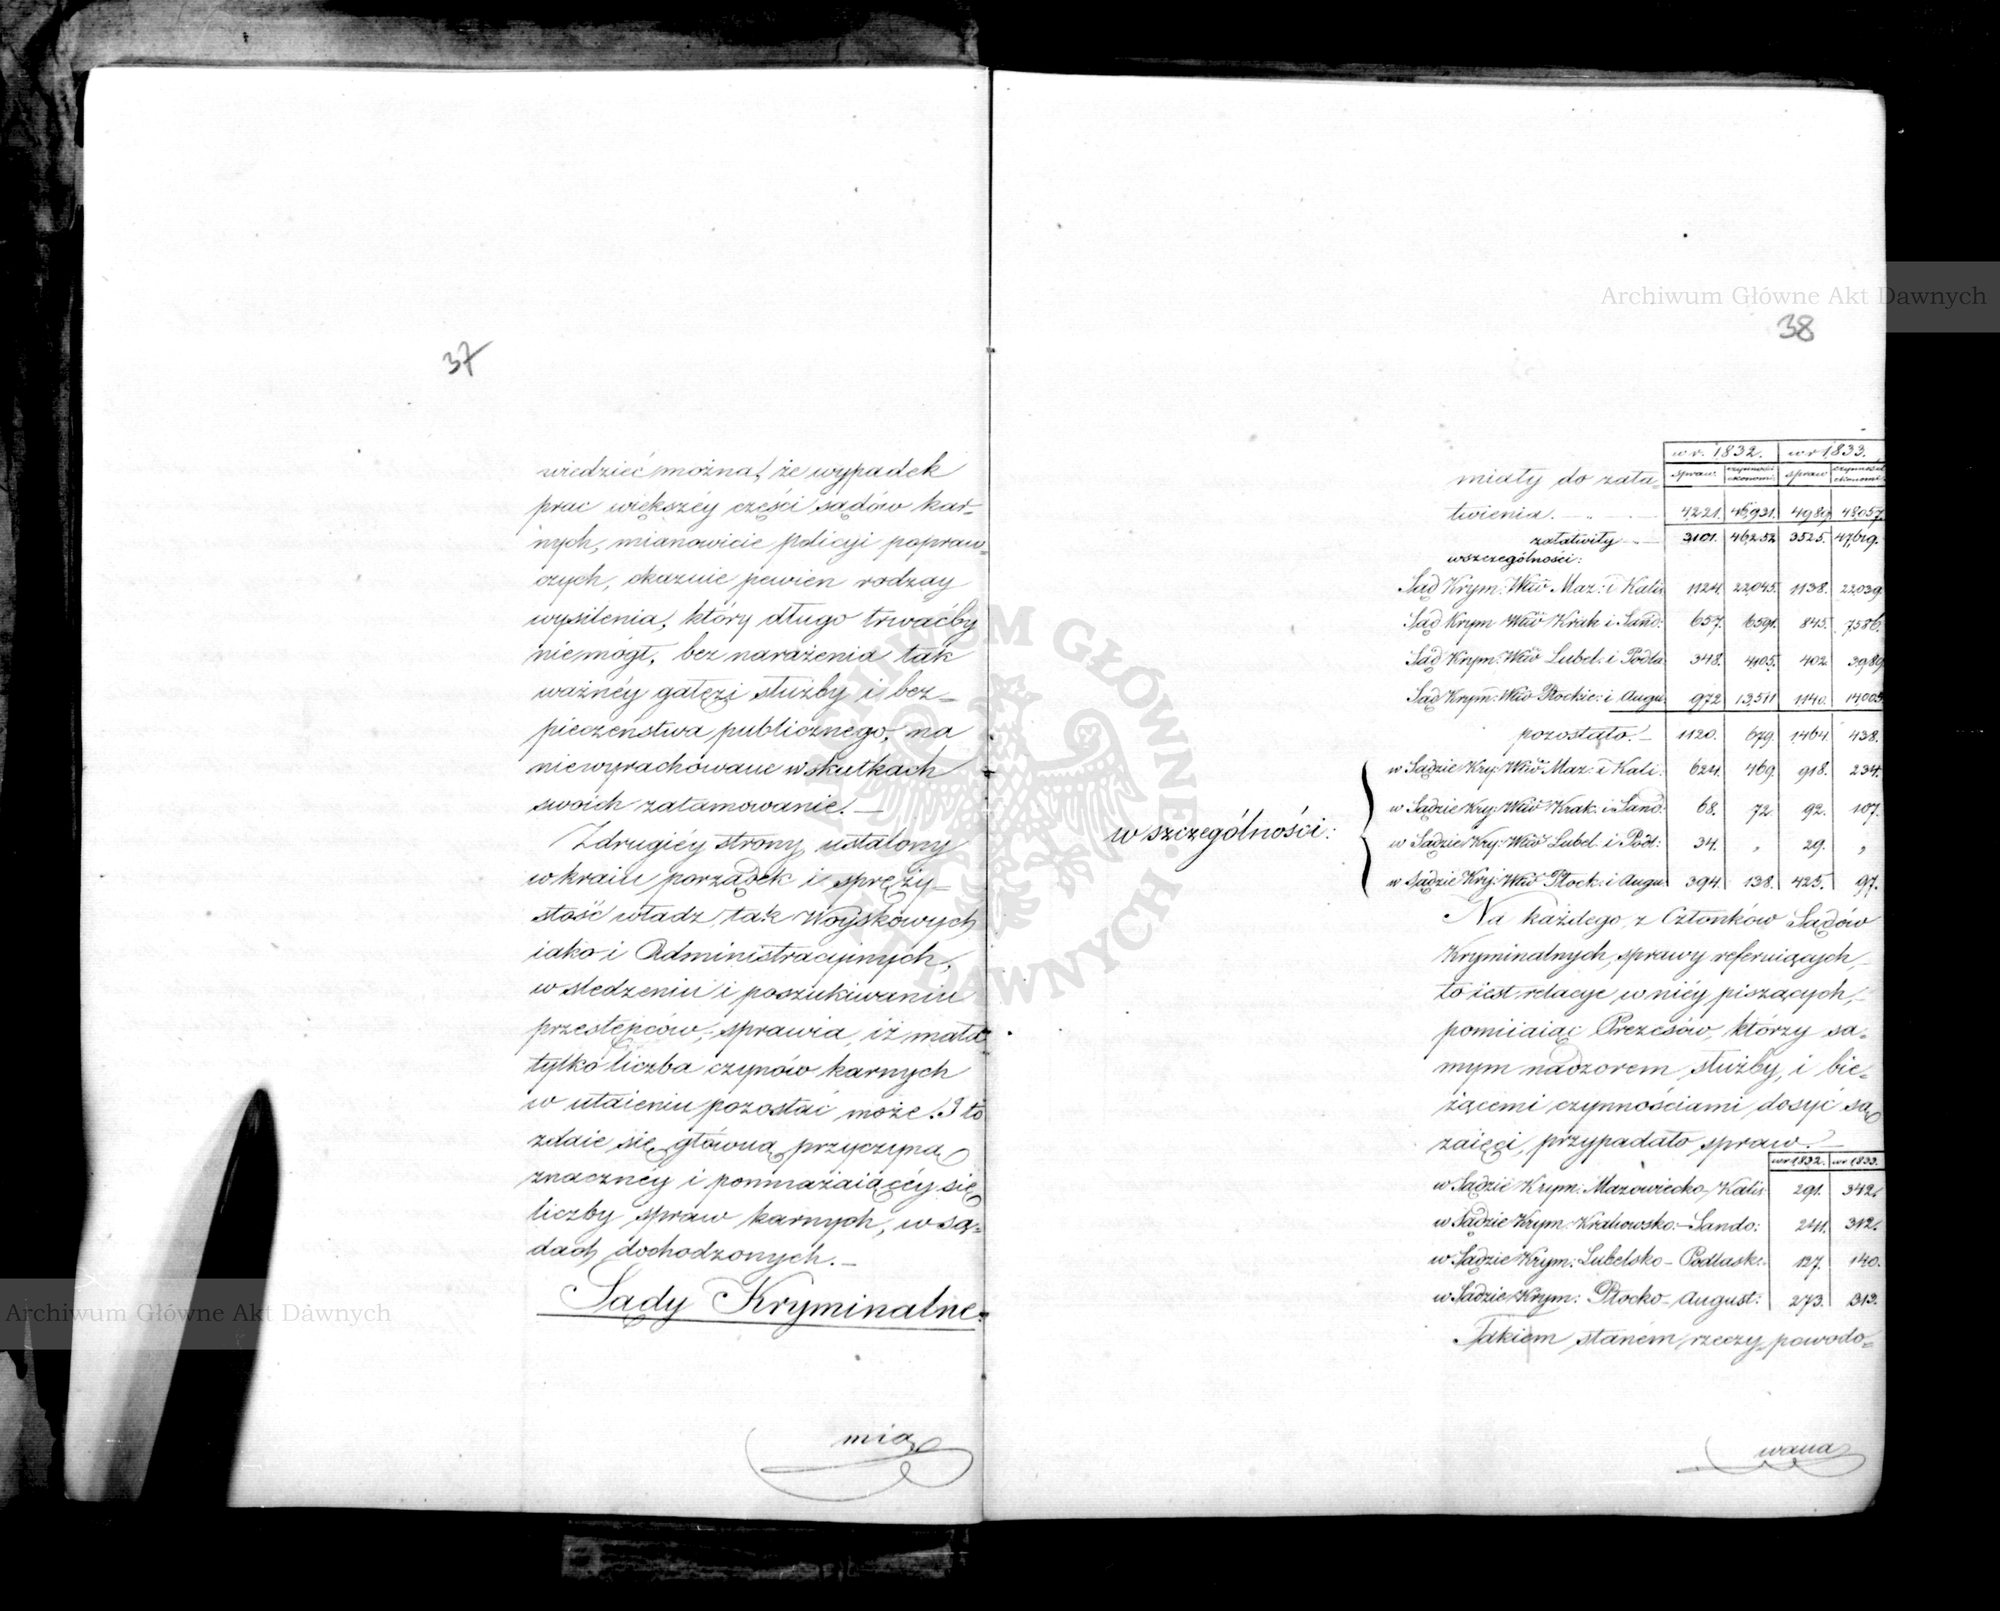 37
wiedzieć można, że wypadek
prac większéy części sądów kar-
nych, mianowicie policyi popraw-
czych, okazuie pewien rodzay
wysilenia, który długo trwaćby
niemógł, bez narażenia tak
ważnéy gałęzi służby i bez-
pieczeństwa publicznego, na
niewyrachowane w skutkach
swoich zatamowanie. —
Zdrugiéy strony ustalony
w kraiu porządek i spręży-
stość władz, tak Woyskowych
iako i Administracyinych,
w śledzeniu i poszukiwaniu
przestępców, sprawia, iż mała
tylko liczba czynów karnych
w utaieniu pozostać może. I to
zdaie się główną przyczyną
znacznéy i pomnażaiącéy się
liczby spraw karnych, w są-
dach dochodzonych. —
Sądy Kryminalne
mia
38
w r. 1832. w r 1833.
miały do zała- spraw czynności ekonom: spraw czynności ekonom:
twienia. 4221. 46,931. 4989 48057.
załatwiły 3101. 46,252 3525. 47,619.
wszczególności:
Sąd Krym: Wdw Maz: i Kalis 1124. 22045. 1138. 22039.
Sąd Krym Wdw Krak i Sand: 657. 6591. 845. 7586.
Sąd Krym: Wdw Lubel: i Podla 348. 4105. 402. 3989.
Sąd Krym: Wdw Płockie: i Augu 972 13,511 1140. 14,005
pozostało. — 1120. 679. 1464. 438.
w szczególności:
w Sądzie Kry: Wdw Maz: i Kali: 624. 469. 918. 234.
w Sądzie Kry: Wdw Krak: i Sand: 68. 72. 92. 107.
w Sądzie Kry: Wdw Lubel: i Podl: 34. „ 29. „
w Sądzie Kry: Wdw Płock: i Augu 394. 138. 425. 97.
Na każdego z Członków Sądów
Kryminalnych, sprawy referuiących,
to iest relacye w niéy piszących,
pomiiaiąc Prezesów, którzy sa-
mym nadzorem służby, i bie-
żącemi czynnościami dosyć są
zaięci, przypadało spraw. —
w r 1832. w r 1833.
w Sądzie Krym: Mazowiecko, Kalis 291. 342.
w Sądzie Krym: Krakowsko-Sando: 241. 312.
w Sądzie Krym: Lubelsko-Podlask: 127. 140.
w Sądzie Krym: Płocko-August: 273. 313.
Takiem stanem rzeczy powodo-
wana
Archiwum Główne Akt Dawnych
Archiwum Główne Akt Dawnych
ARCHIWUM GŁÓWNE AKT DAWNYCH